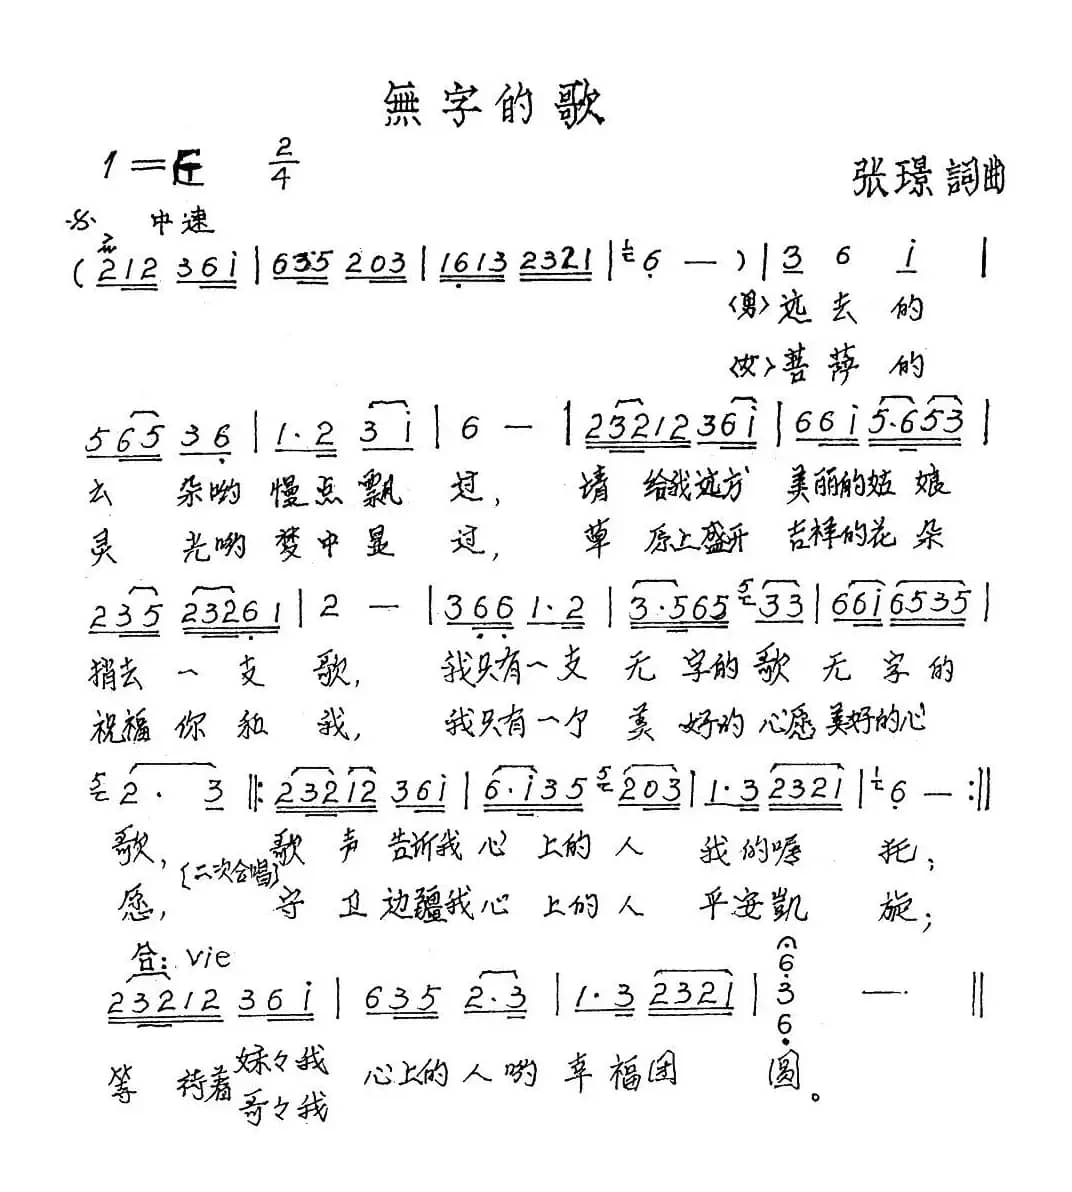 無字的歌
1=E 2/4
张璟詞曲
中速
(212 36i | 6335 203 | 1613 2321 | 6 — ) | 3 6 i |
〈男〉远去的
〈女〉菩萨的
565 36 | 1·2 3i | 6 — | 23212 36i | 66i 5·653 |
云朵哟慢点飘过，请给我远方美丽的姑娘
灵光哟梦中显过，草原上盛开吉祥的花朵
235 23261 | 2 — | 366 1·2 | 3·565 5 33 | 66i 6535 |
捎去一支歌，我只有一支无字的歌无字的
祝福你和我，我只有一个美好的心愿美好的心
5 2· 3 ‖: 23212 36i | 6·i35 5 203 | 1·3 2321 | 1 6 — :‖
歌，歌声告诉我心上的人我的嘱托；
〔二次合唱〕
愿，守卫边疆我心上的人平安凱旋；
合：vie
23212 36i | 635 2·3 | 1·3 2321 | 6 3 6 — ‖
等待着妹々我心上的人哟幸福团圆。
哥々我